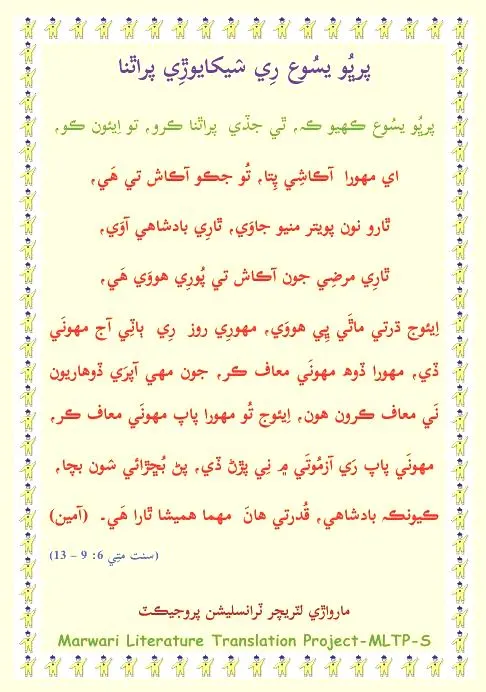 پرڀُو يسُوع رِي شيکايوڙِي پراٿنا
پرڀُو يسُوع ڪهيو ڪہ, ٿي جڏي پراٿنا ڪرو, تو اِيئون ڪو,
اي مهورا آڪاشِي پِتا, تُو جڪو آڪاش تي هَي,
ٿارو نون پويتر منيو جاوَي, ٿارِي بادشاهي آوَي,
ٿارِي مرضِي جون آڪاش تي پُورِي هووَي هَي,
اِيئوج ڌرتي ماٿَي ڀِي هووَي, مهورِي روز رِي ٻاٽِي آج مهونَي
ڏي, مهورا ڏوهہ مهونَي معاف ڪر, جون مهي آپرَي ڏوهاريون
نَي معاف ڪرون هون, اِيئوج تُو مهورا پاپ مهونَي معاف ڪر,
مهونَي پاپ رَي آزمُوتَي ۾ نِي پڙڻ ڏي, پڻ بُڇڙائي شون بچا,
ڪيونڪہ بادشاهي, قُدرتي هانَ مهما هميشا ٿارا هَي۔ (آمين)
(سنت متِي 6: 9 – 13)
مارواڙي لٽريچر ٽرانسليشن پروجيڪٽ
Marwari Literature Translation Project-MLTP-S